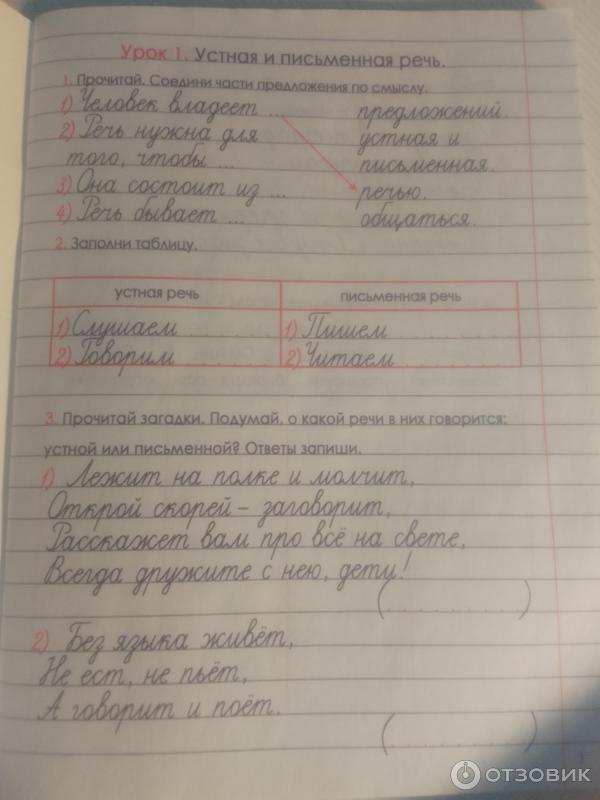 Урок 1. Устная и письменная речь.
1. Прочитай. Соедини части предложения по смыслу.
1) Человек владеет ... предложений.
2) Речь нужна для устная и
того, чтобы ... письменная.
3) Она состоит из ... речью.
4) Речь бывает ... общаться.
2. Заполни таблицу.
устная речь письменная речь
1) Слушаем 1) Пишем
2) Говорим 2) Читаем
3. Прочитай загадки. Подумай, о какой речи в них говорится:
устной или письменной? Ответы запиши.
1) Лежит на полке и молчит,
Открой скорей – заговорит,
Расскажет вам про всё на свете,
Всегда дружите с нею, дети!
(..........)
2) Без языка живёт,
Не ест, не пьёт,
А говорит и поёт.
(..........)
1
ОТЗОВИК